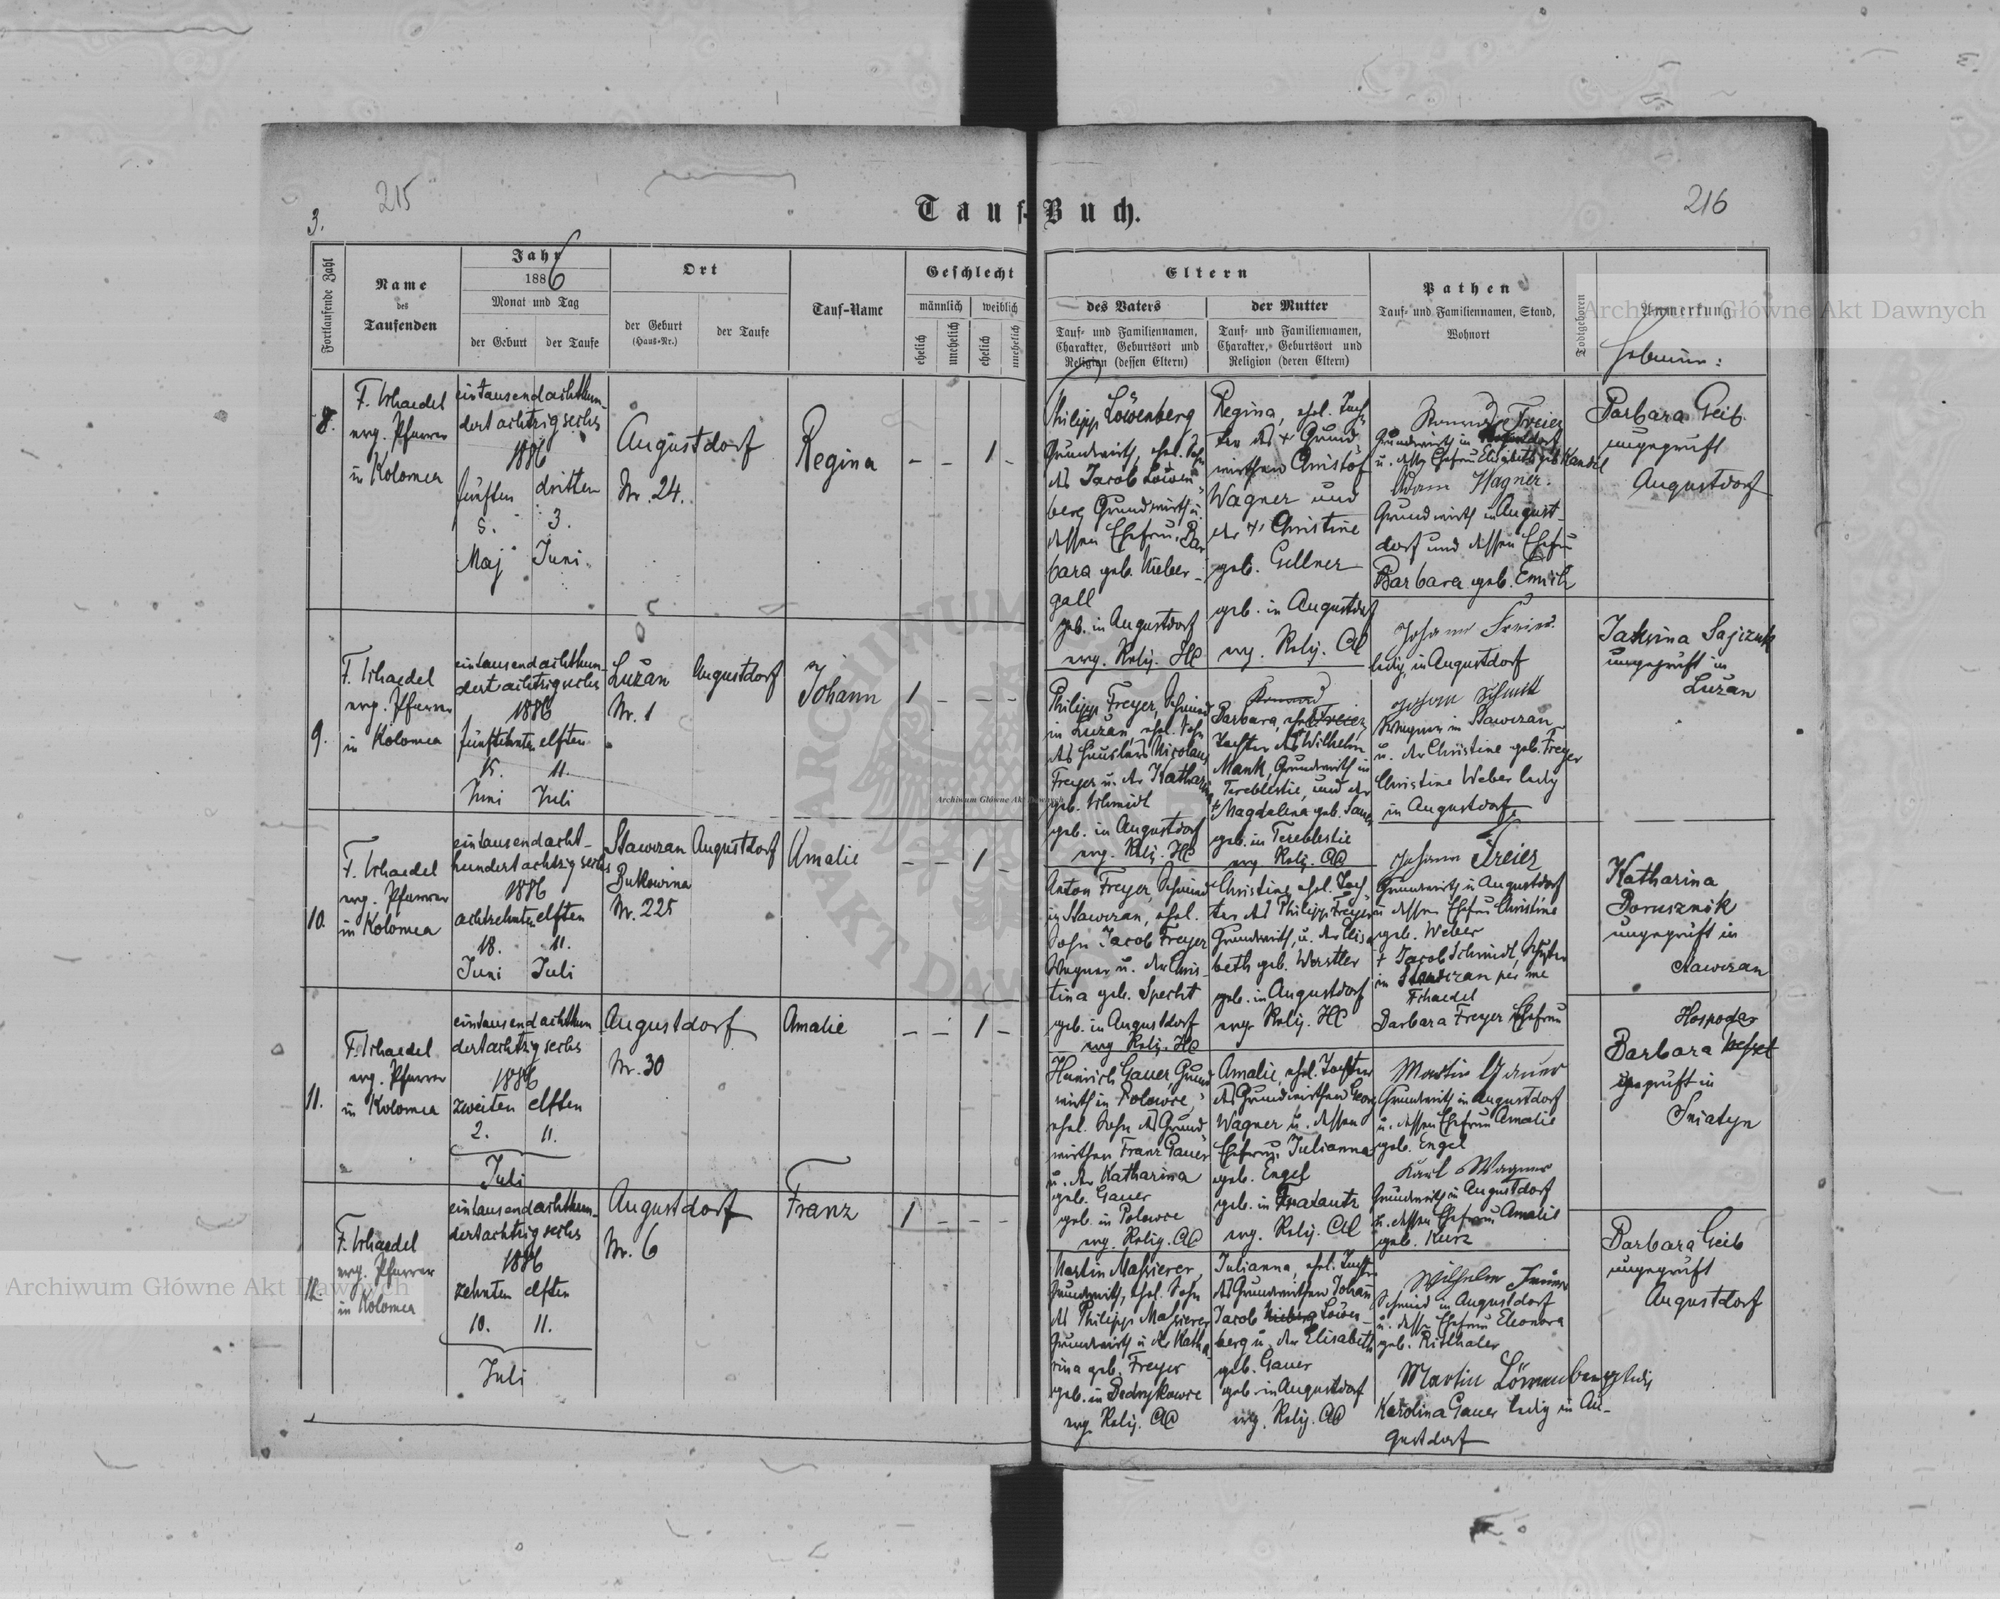 215
3.
216
Tauf-Buch.
Fortlaufende Zahl
Name
des
Taufenden
Jahr
1886
Monat und Tag
der Geburt
der Taufe
Ort
der Geburt
(Haus-Nr.)
der Taufe
Tauf-Name
Geschlecht
männlich
weiblich
ehelich
unehelich
ehelich
unehelich
Eltern
des Vaters
Tauf- und Familiennamen,
Charakter, Geburtsort und
Religion (dessen Eltern)
der Mutter
Tauf- und Familiennamen,
Charakter, Geburtsort und
Religion (deren Eltern)
Pathen
Tauf- und Familiennamen, Stand,
Wohnort
Todtgeboren
Anmerkung
Hebamme:
8.
F. Schaedel
evg. Pfarrer
in Kolomea
eintausendachthun-
dertachtzigsechs
1886
fünften
5.
Maj
dritten
3.
Juni
Augustdorf
Nr. 24.
Regina
- - 1 -
Philipp Löwenberg
Grundwirth, ehel. Sohn
des Jacob Löwen-
berg Grundwirth u.
dessen Ehefrau, Bar-
bara geb. Nieber-
gall
geb. in Augustdorf
evg. Relig. HC
Regina, ehel. Toch-
ter des + Grund-
wirthen Christof
Wagner und
der + Christine
geb. Gellner
geb. in Augustdorf
evg. Relig. AC
Konrad Freier
Grundwirth in Augustdorf
u. dessen Ehefrau Elisabeth geb. Kandel
Adam Wagner
Grundwirth in August-
dorf und dessen Ehefrau
Barbara geb. Emich
Barbara Geib
ungeprüft
Augustdorf
9.
F. Schaedel
evg. Pfarrer
in Kolomea
eintausendachthun-
dertachtzigsechs
1886
fünfzehnten
15.
Juni
elften
11.
Juli
Luzan
Nr. 1
Augustdorf
Johann
1 - - -
Philipp Freyer, Schmied
in Luzan, ehel. Sohn
des Häuslers Nicolaus
Freyer u. der Katharina
geb. Schmidt
geb. in Augustdorf
evg. Relig. HC
Barbara, ehel.
Tochter des Wilhelm
Mank, Grundwirth in
Tereblestie, und der
+ Magdalena geb. Sauer
geb. in Tereblestie
evg. Relig. AC
Johann Freier
ledig, in Augustdorf
Johann Schmidt
Wagner in Stawczan
u. der Christine geb. Freyer
Christine Weber ledig
in Augustdorf
ungeprüft in
Luzan
10.
F. Schaedel
evg. Pfarrer
in Kolomea
eintausendacht-
hundertachtzigsechs
1886
achzehnten
18.
Juni
elften
11.
Juli
Stawczan
Bukowina
Nr. 225
Augustdorf
Amalie
- - 1 -
Anton Freyer, Schmied
in Stawczan, ehel.
Sohn Jacob Freyer
Wagner u. der Chris-
tina geb. Specht
geb. in Augustdorf
evg. Relig. HC
Christine, ehel. Toch-
ter des Philipp Freyer
Grundwirth, u. der Elisa-
beth geb. Werstler
geb. in Augustdorf
evg. Relig. HC
Johann Freier
Grundwirth in Augustdorf
u. dessen Ehefrau Christine
geb. Weber
+ Jacob Schmidt, Schuster
in Stawczan per me
Schaedel
Barbara Freyer Ehefrau
Katharina
ungeprüft in
Stawczan
11.
F. Schaedel
evg. Pfarrer
in Kolomea
eintausendachthun-
dertachtzigsechs
1886
zweiten
2.
elften
11.
Juli
Augustdorf
Nr. 30
Amalie
- - 1 -
Heinrich Gauer, Grund-
wirth in Polowce,
ehel. Sohn des Grund-
wirthen Franz Gauer
u. der Katharina
geb. Gauer
geb. in Polowce
evg. Relig. AC
Amalie, ehel. Tochter
des Grundwirthen Georg
Wagner u. dessen
Ehefrau, Julianna
geb. Engel
geb. in
evg. Relig. AC
Martin Gauer
Grundwirth in Augustdorf
u. dessen Ehefrau Amalie
geb. Engel
Karl Wagner
Grundwirth in Augustdorf
u. dessen Ehefrau Amalie
geb. Kurz
Barbara
geprüft in
Sniatyn
12.
F. Schaedel
evg. Pfarrer
in Kolomea
eintausendachthun-
dertachtzigsechs
1886
zehnten
10.
elften
11.
Juli
Augustdorf
Nr. 6
Franz
1 - - -
Martin Massierer
Grundwirth, ehel. Sohn
des Philipp Massierer
Grundwirth u. der Katha-
rina geb. Freyer
geb. in
evg. Relig. AC
Julianna, ehel. Tochter
des Grundwirthen Johann
Jacob Löwen-
berg u. der Elisabeth
geb. Gauer
geb. in Augustdorf
evg. Relig. AC
Wilhelm
Schmied in Augustdorf
u. dessen Ehefrau Eleonora
geb. Risthaler
Martin Löwenberg ledig
Karolina Gauer ledig in Au-
gustdorf
Barbara Geib
ungeprüft
Augustdorf
Archiwum Główne Akt Dawnych
Archiwum Główne Akt Dawnych
Archiwum Główne Akt Dawnych